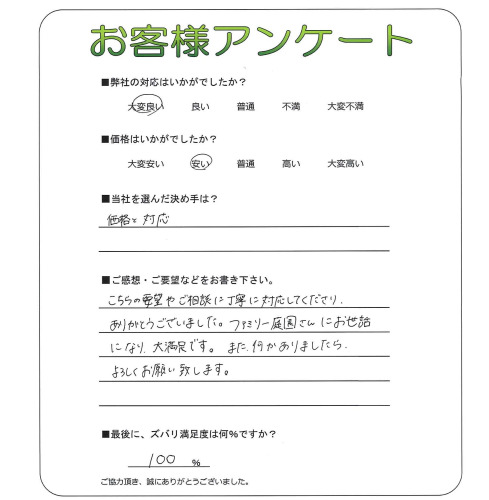 お客様アンケート
■弊社の対応はいかがでしたか？
大変良い 良い 普通 不満 大変不満
■価格はいかがでしたか？
大変安い 安い 普通 高い 大変高い
■当社を選んだ決め手は？
価格と対応
■ご感想・ご要望などをお書き下さい。
こちらの要望やご相談に丁寧に対応してくださり、
ありがとうございました。ファミリー庭園さんにお世話
になり、大満足です。また、何かありましたら、
よろしくお願い致します。
■最後に、ズバリ満足度は何％ですか？
100 ％
ご協力頂き、誠にありがとうございました。